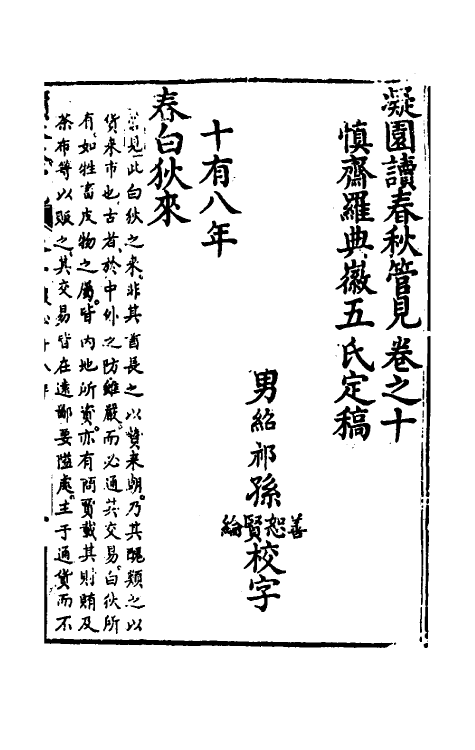 凝園讀春秋管見卷之十
慎齋羅典徽五氏定稿
男紹祁孫善恕賢綸校字
十有八年
春白狄來
管見此白狄之來非其酋長之以贄來朝乃其醜類之以
貨來市也古者於中外之防雖嚴而必通其交易白狄所
有如牲畜皮物之屬皆內地所資亦有商賈載其財賄及
茶布等以販之其交易皆在邊鄙要隘處主于通貨而不